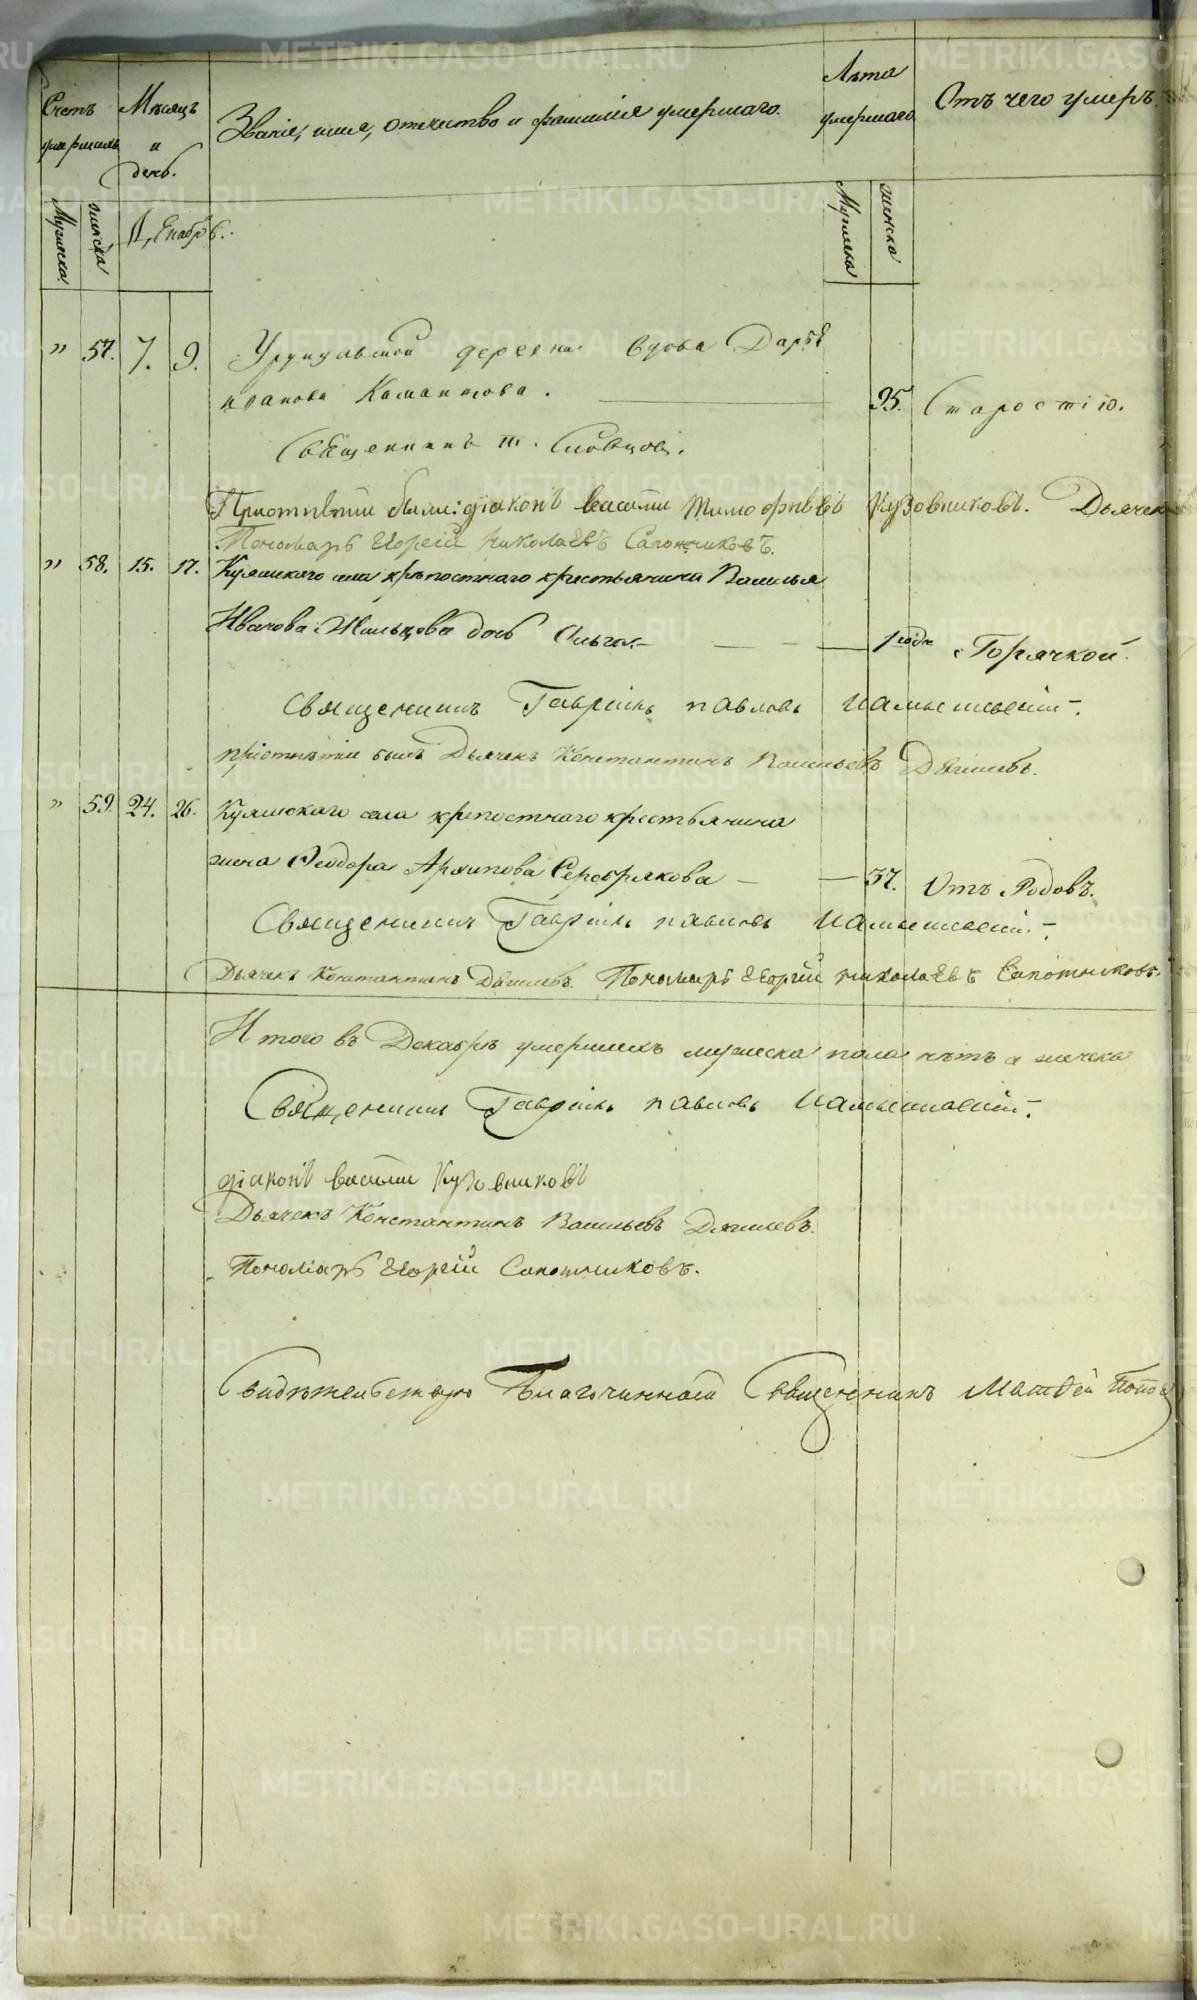 Счетъ умершихъ
Мѣсяцъ и день.
Званіе, имя, отчество и фамилія умершаго.
Лѣта умершаго
Отъ чего умеръ.
Мужеска
женска
Декабрь.
Мужеска
женска
" 57. 7. 9. деревни вдова Дарья
95. Старостію.
Священникъ
При отпѣтіи были: діаконъ василій Тимофѣевъ Кузовниковъ. Дьячек
Пономарь Егоргій николаевъ Сапожниковъ.
" 58. 15. 17. Куяшскаго села крѣпостнаго крестьянина Василья
Иванова Жильцова дочь Ольга.— 1 годъ Горячкой.
Священникъ Гавріилъ павловъ
при отпѣтіи былъ Дьячекъ Константинъ Васильевъ Дягилевъ.
" 59. 24. 26. Куяшскаго села крепостнаго крестьянина
жена Ѳеодора Архипова Серебрякова — 37. Отъ Родовъ.
Священникъ Гавріилъ павловъ
Дьячекъ Константинъ Дягилевъ. Пономарь Егоргій николаевъ Сапожниковъ.
Итого въ Декабрѣ умершихъ мужеска пола нѣтъ а женска
Священникъ Гавріилъ павловъ
діаконъ василій Кузовниковъ
Дьячекъ Константинъ Васильевъ Дягилевъ.
Пономарь Егоргій Сапожниковъ.
Свидѣтельствую Благочинной Священникъ Матвей Попов
METRIKI.GASO-URAL.RU